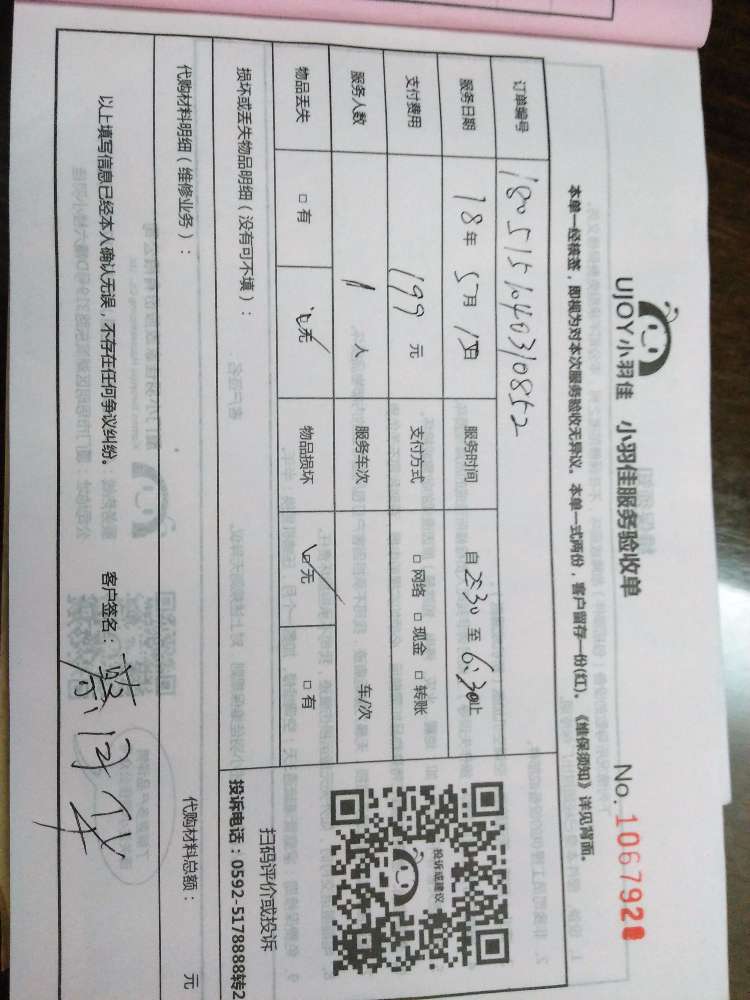 UJOY小羽佳 小羽佳服务验收单 No. 1067928
本单一经核签，即视为对本次服务验收无异议。本单一式两份，客户留存一份(红)。《维保须知》详见背面。
订单编号 1805151040310852
服务日期 18年 5月 15日 服务时间 自 2:30 至 6:30止
支付费用 199 元 支付方式 □ 网络 □ 现金 □ 转账
服务人数 1 人 服务车次 车/次
物品丢失 □ 有 □ 无 物品损坏 □ 无 □ 有
投诉或建议
扫码评价或投诉
投诉电话：0592-5178888转2
损坏或丢失物品明细（没有可不填）：
代购材料明细（维修业务）： 代购材料总额： 元
以上填写信息已经本人确认无误，不存在任何争议纠纷。 客户签名：